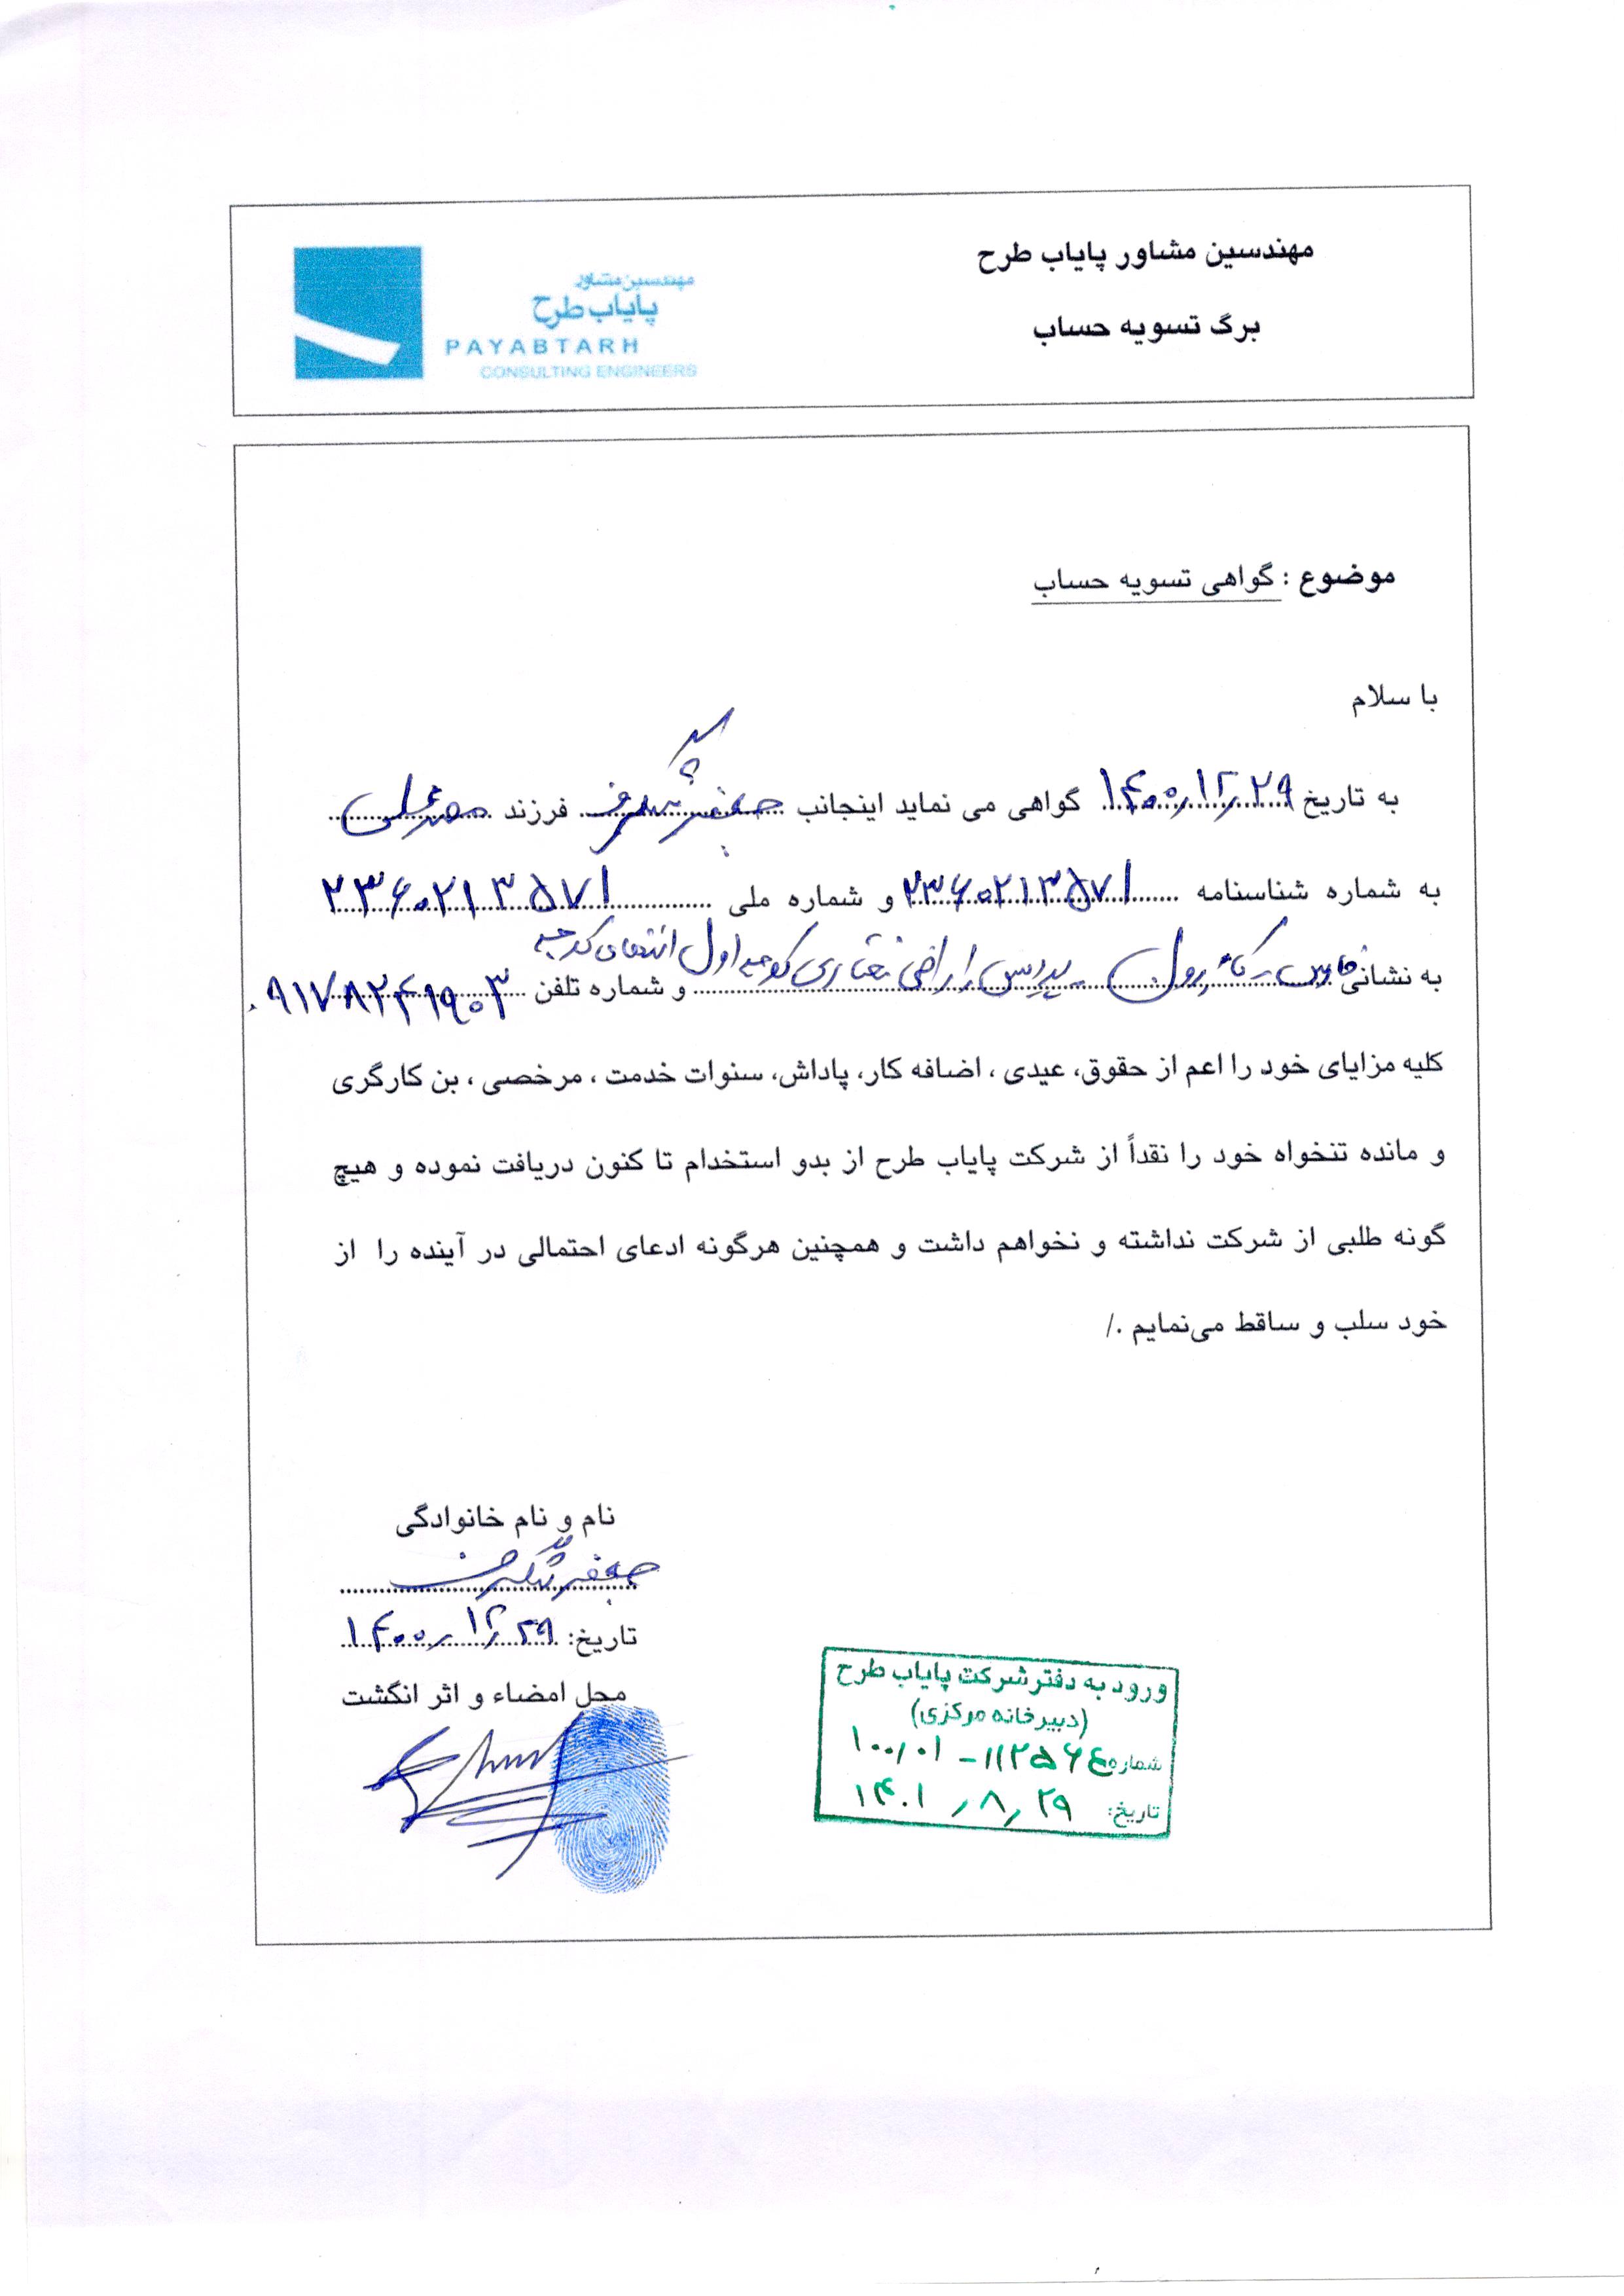 مهندسین مشاور پایاب طرح
برگ تسویه حساب
مهندسین مشاور
پایاب طرح
PAYABTARH
CONSULTING ENGINEERS
موضوع : گواهی تسویه حساب
با سلام
به تاریخ ۱۴۰۰/۱۲/۲۹ گواهی می نماید اینجانب جعفر شگرف فرزند محمدعلی
به شماره شناسنامه ۲۳۶۰۲۱۳۵۷۱ و شماره ملی ۲۳۶۰۲۱۳۵۷۱
به نشانی فارس پردیس اراضی کوچه اول انتهای کوچه و شماره تلفن ۰۹۱۷۸۲۴۱۹۰۳
کلیه مزایای خود را اعم از حقوق، عیدی ، اضافه کار، پاداش، سنوات خدمت ، مرخصی ، بن کارگری
و مانده تنخواه خود را نقداً از شرکت پایاب طرح از بدو استخدام تا کنون دریافت نموده و هیچ
گونه طلبی از شرکت نداشته و نخواهم داشت و همچنین هرگونه ادعای احتمالی در آینده را از
خود سلب و ساقط می‌نمایم ./
نام و نام خانوادگی
جعفر شگرف
تاریخ: ۱۴۰۰/۱۲/۲۹
محل امضاء و اثر انگشت
ورود به دفتر شرکت پایاب طرح
(دبیرخانه مرکزی)
شماره ۱۰۰/۰۱ - ۱۱۲۵۶۴
تاریخ: ۱۴۰۱/۸/۲۹